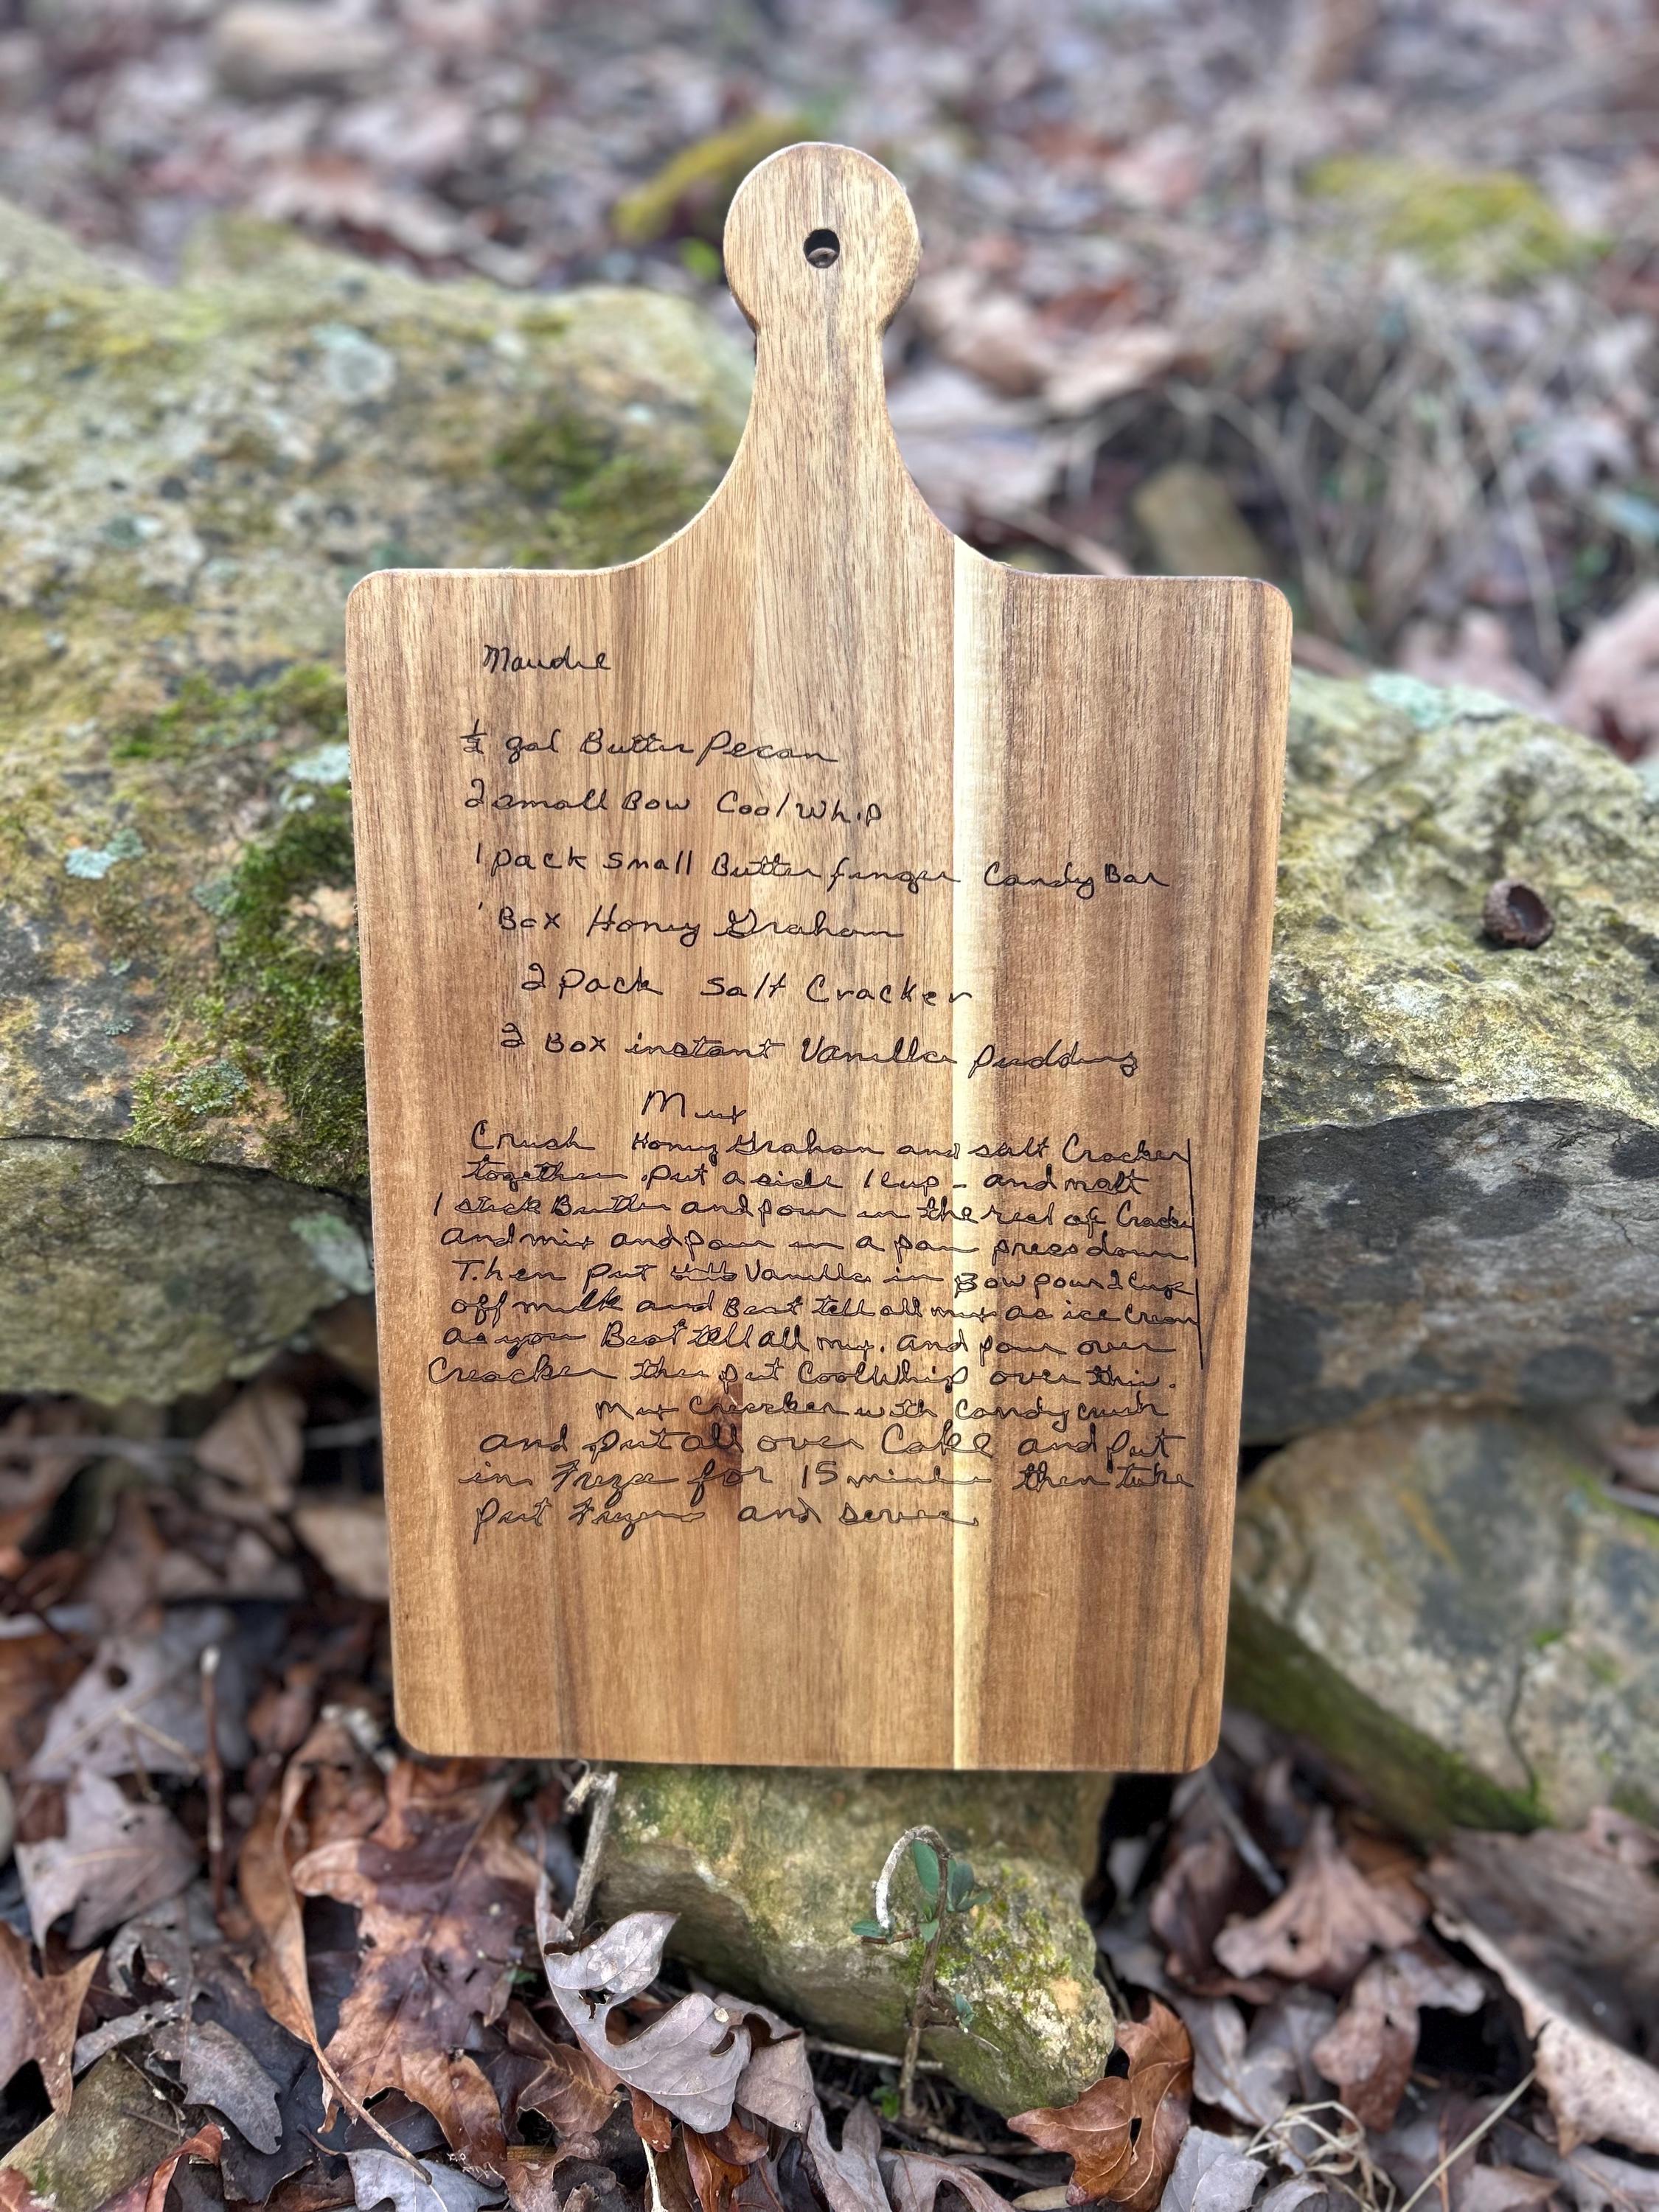 Maudie
½ gal Butter Pecan
2 small Bow Cool Whip
1 pack small Butter finger Candy Bar
1 Box Honey Graham
2 pack salt Cracker
2 Box instant Vanilla pudding
Mix
Crush Honey Graham and salt Cracker
together . put a side 1 cup - and malt
1 stick Butter and pour in the rest of Cracker
and mix and pour in a pan press down
Then put Vanilla in Bow pour 2 cups
off milk and Beat tell all mix as ice Cream
as you Beat tell all mix. and pour over
Creacker then put Cool Whip over this.
Mix Creacker with Candy crush
and put all over Cake and put
in for 15 then take
put and serve.